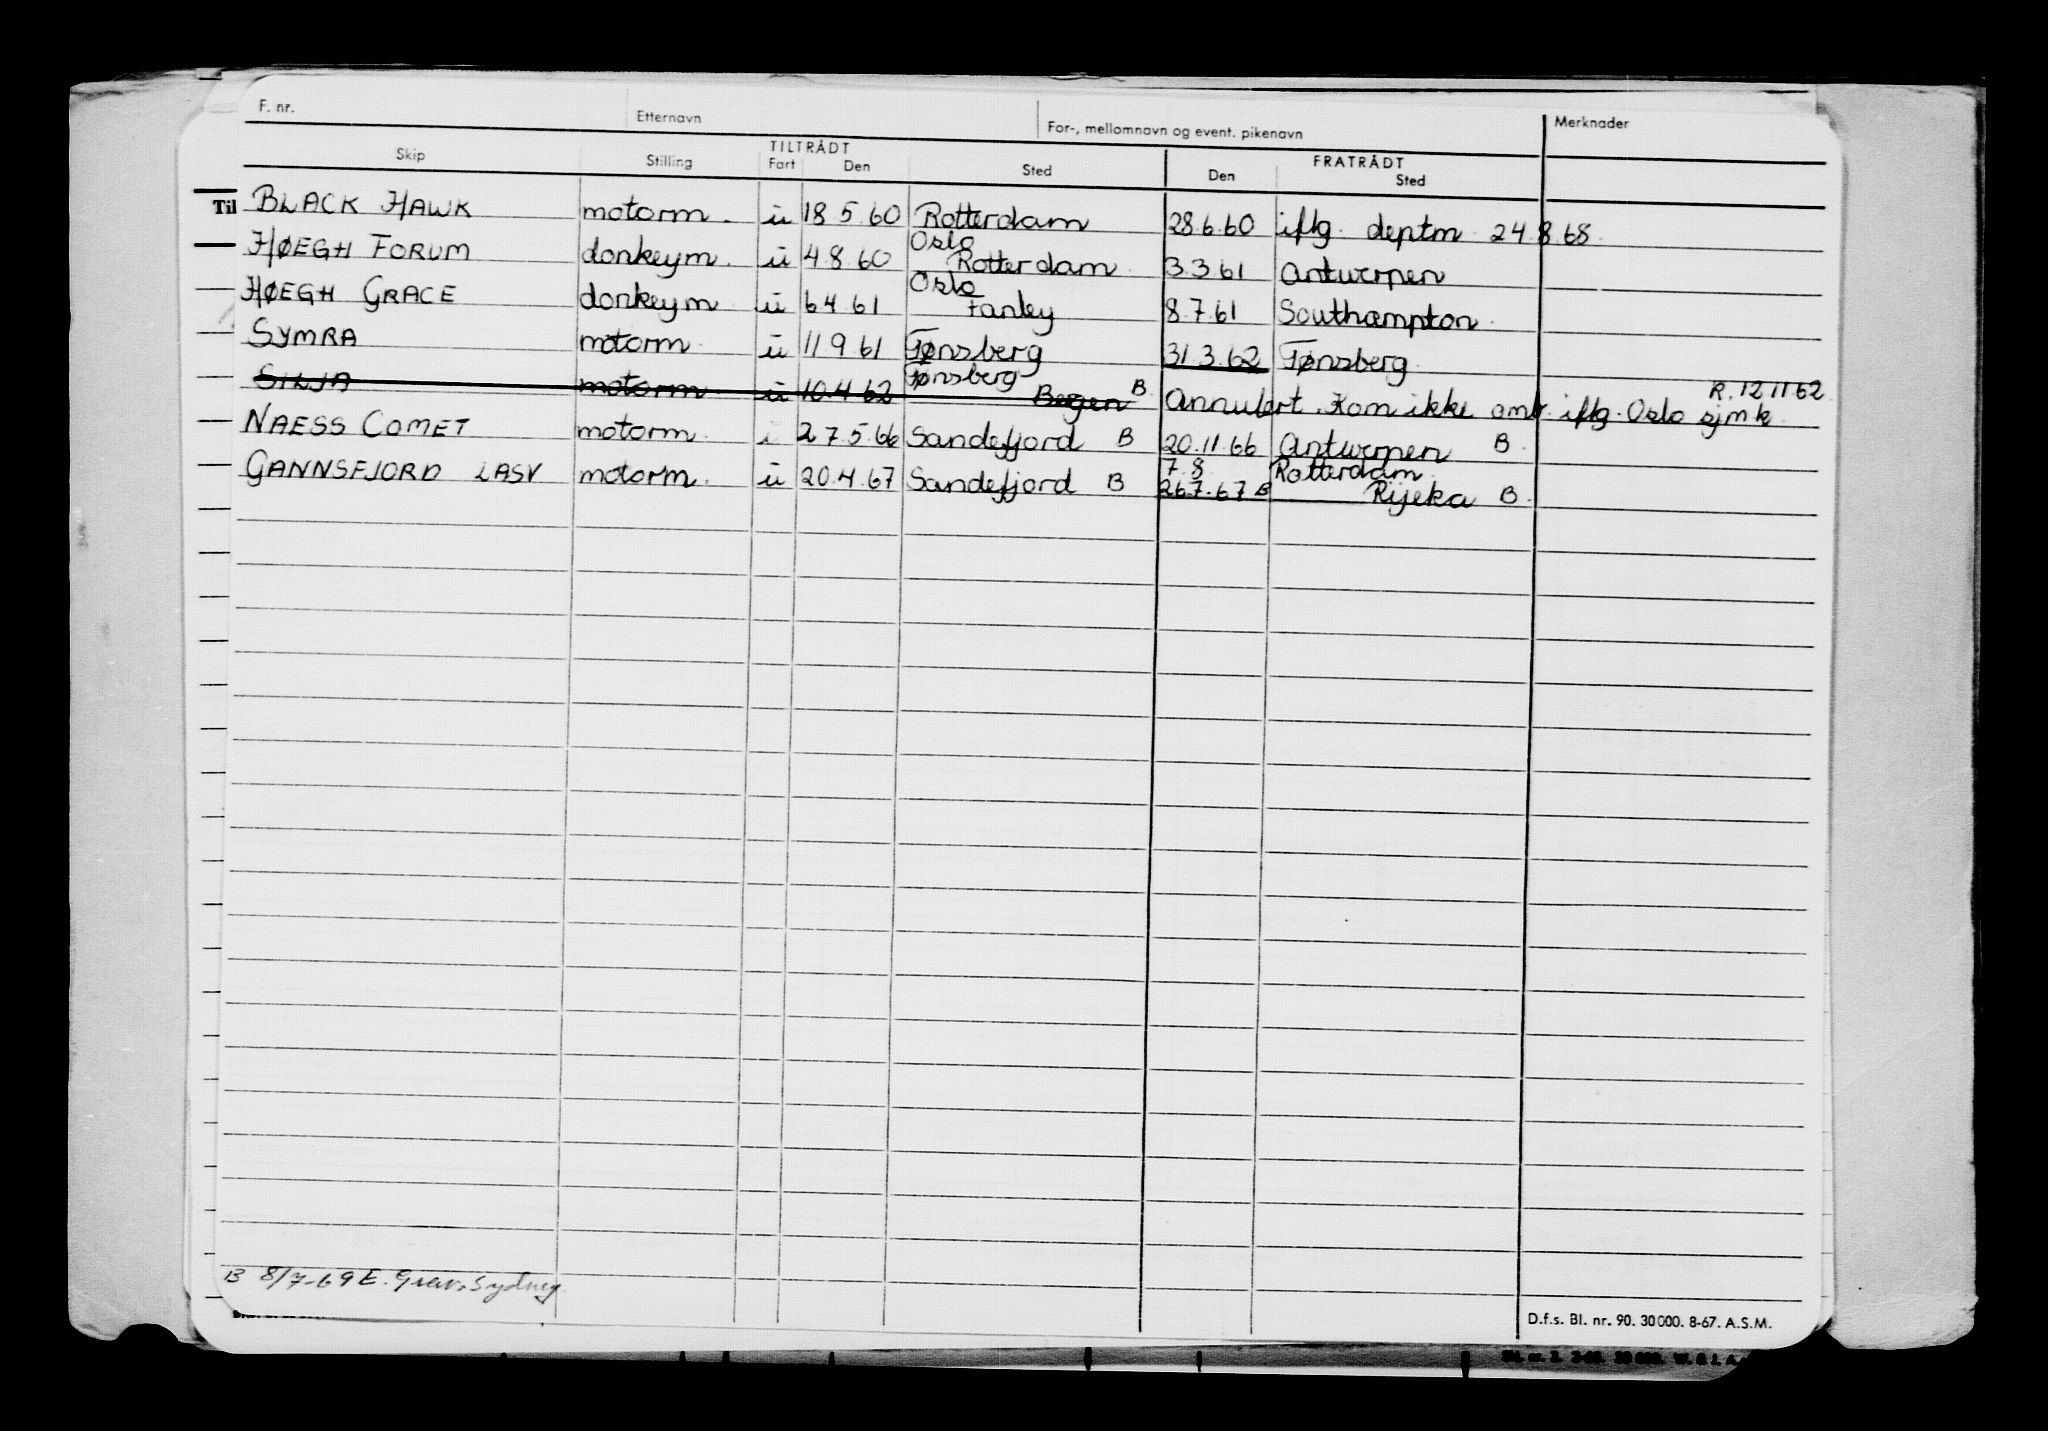 F. nr. Etternavn For-, mellomnavn og event. pikenavn Merknader
TILTRÅDT FRATRÅDT
Skip Stilling Fart Den Sted Den Sted
Til
BLACK HAWK motorm. u 18 5 60 Rotterdam 28.6.60 iflg. deptm 24 8 68.
HØEGH FORUM donkeym. u 4.8.60 Oslo Rotterdam 3.3.61 Antwerpen
HØEGH GRACE donkeym u 6 4 61 Oslo Fanley 8.7.61 Southampton
SYMRA motorm u 11 9 61 Tønsberg 31.3.62 Tønsberg
SILJA motorm u 10.4 62 Tønsberg Bergen B. Annulert. Kom ikke omb. iflg. Oslo sjmk. R. 12 11 62
NAESS COMET motorm. 27.5.66 Sandefjord B 20.11.66 Antwerpen B
GANNSFJORD LASV motorm. u 20.4.67 Sandefjord B 7.8. Rotterdam
26.7.67 B Rijeka B.
B 8/7-69 E. Sydney
D.f.s. Bl. nr. 90. 30 000. 8-67. A.S.M.